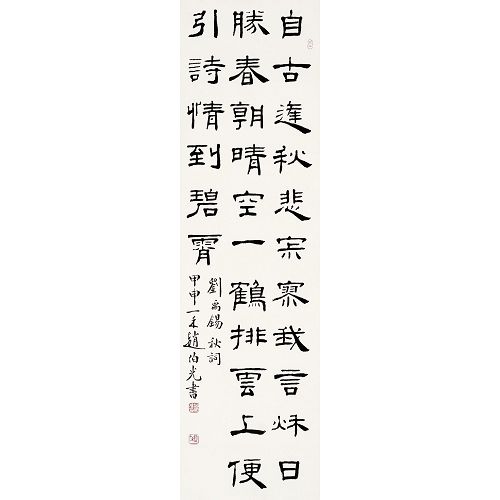 自古逢秋悲寂寥我言秋日
勝春朝晴空一鶴排雲上便
引詩情到碧霄
劉禹錫秋詞
甲申趙伯光書